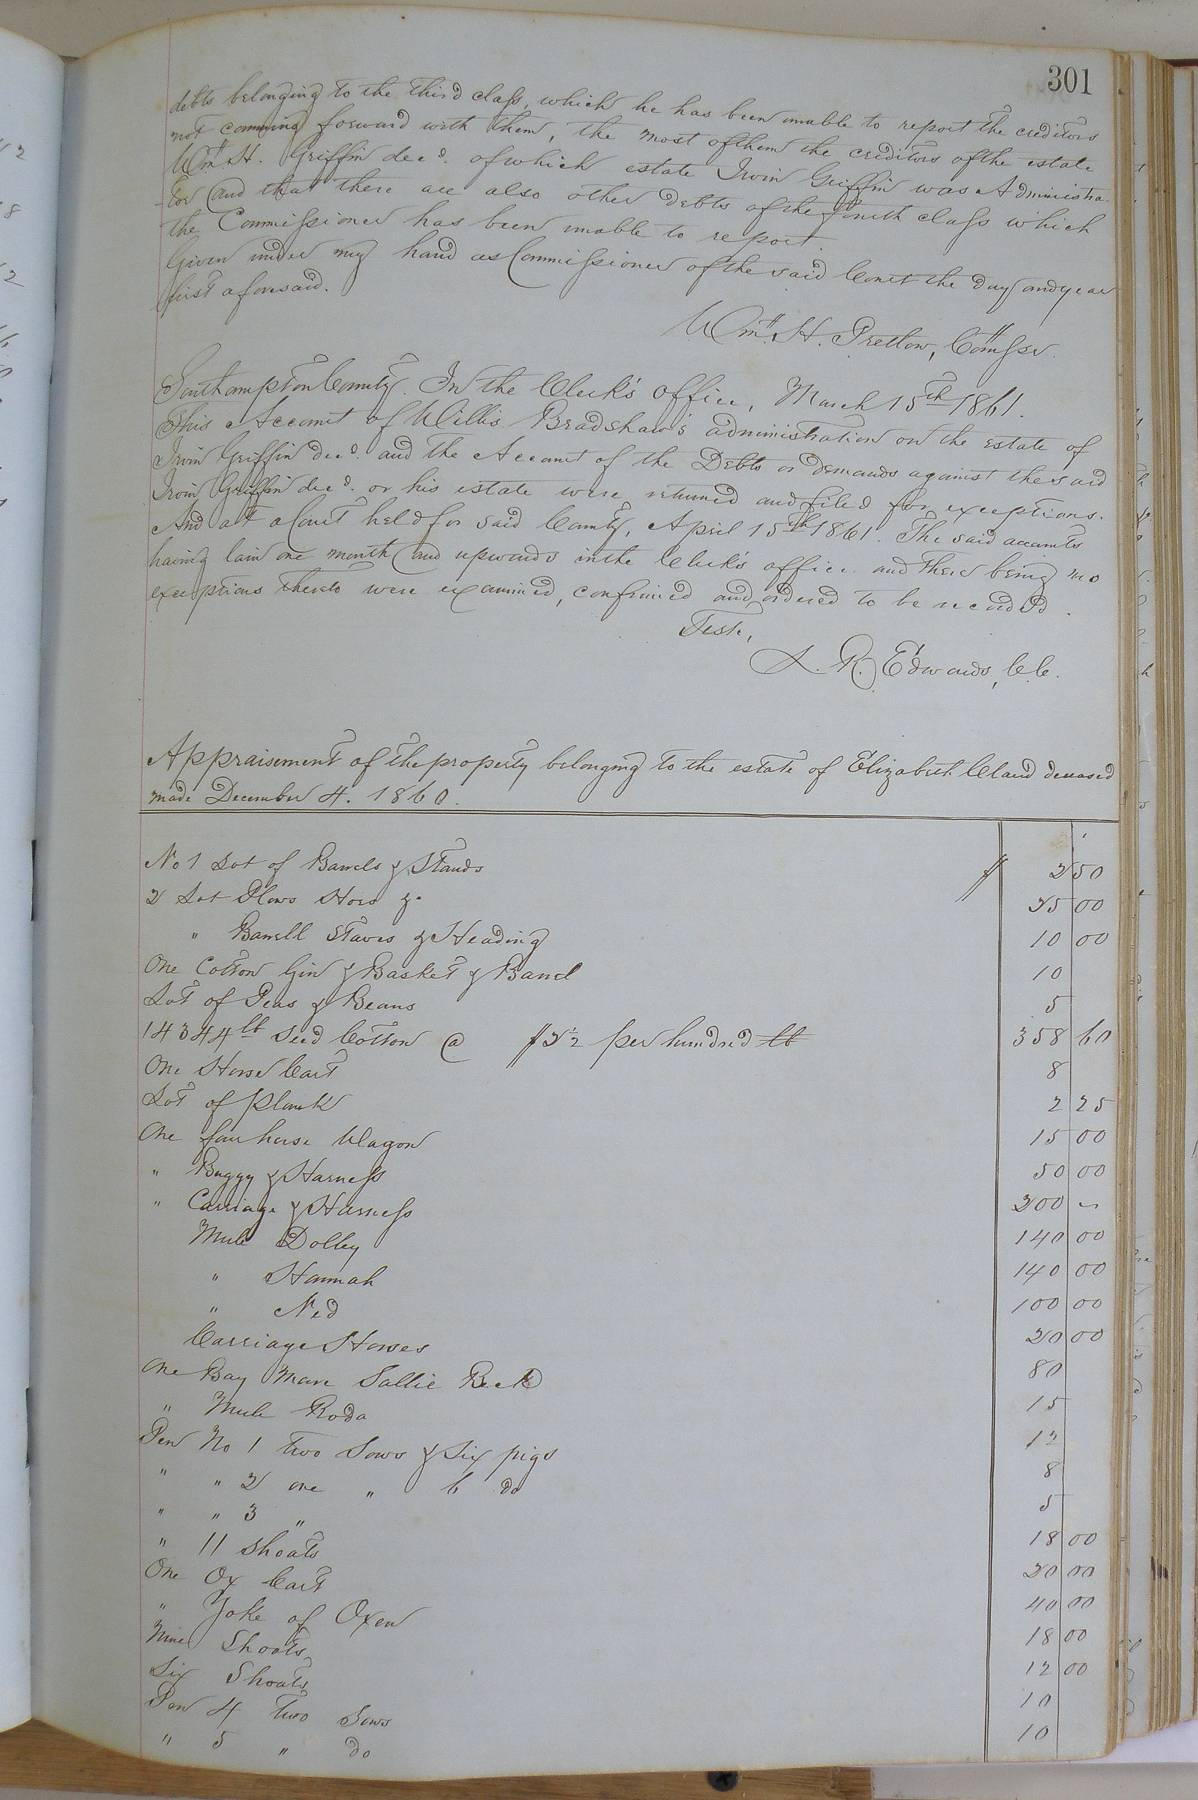 301
debts belonging to the third class, which he has been unable to report the creditors
not comming forward with them, the most of them the creditors of the estate
Wm. H. Griffin decd. of which estate Irvin Griffin was Administra-
-tor and that there are also other debts of the fourth class which
the Commissioner has been unable to report.
Given under my hand as Commissioner of the said Court the day and year
first aforesaid.
Wm. H. Pretlow, Comssr.
Southampton County. In the Clerk's office, March 15th 1861.
This Account of Willis Bradshaw's administration on the estate of
Irvin Griffin decd. and the Account of the Debts or demands against the said
Irvin Griffin decd. or his estate were returned and filed for exceptions.
And at a Court held for said County, April 15th 1861. The said accounts
having lain one month and upwards in the Clerk's office and there being no
exceptions thereto were examined, confirmed and ordered to be recorded.
Teste,
L. R. Edwards, C.C.
Appraisement of the property belonging to the estate of Elizabeth Claud deceased
made December 4. 1860.
No 1 Lot of Barrels & Stands $ 2 50
2 Lot Plows Hoes &c 25 00
" Barrell Staves & Heading 10 00
One Cotton Gin & Basket & Band 10
Lot of Peas & Beans 5
14344 lb Seed Cotton @ $2½ per hundred lb 358 60
One Horse Cart 8
Lot of Plank 2 25
One four horse Wagon 15 00
" Buggy & Harness 50 00
" Carriage & Harness 200 "
Mule Dolley 140 00
" Hannah 140 00
" Ned 100 00
Carriage Horses 20 00
One Bay Mare Sallie Beck 80
" Mule Roda 15
Pen No 1 two Sows & Six pigs 12
" " 2 one " 6 do 8
" " 3 " 5
" 11 Shoats 18 00
One Ox Cart 20 00
" Yoke of Oxen 40 00
Nine Shoats 18 00
Six Shoats 12 00
Pen 4 Two Sows 10
" 5 " do 10